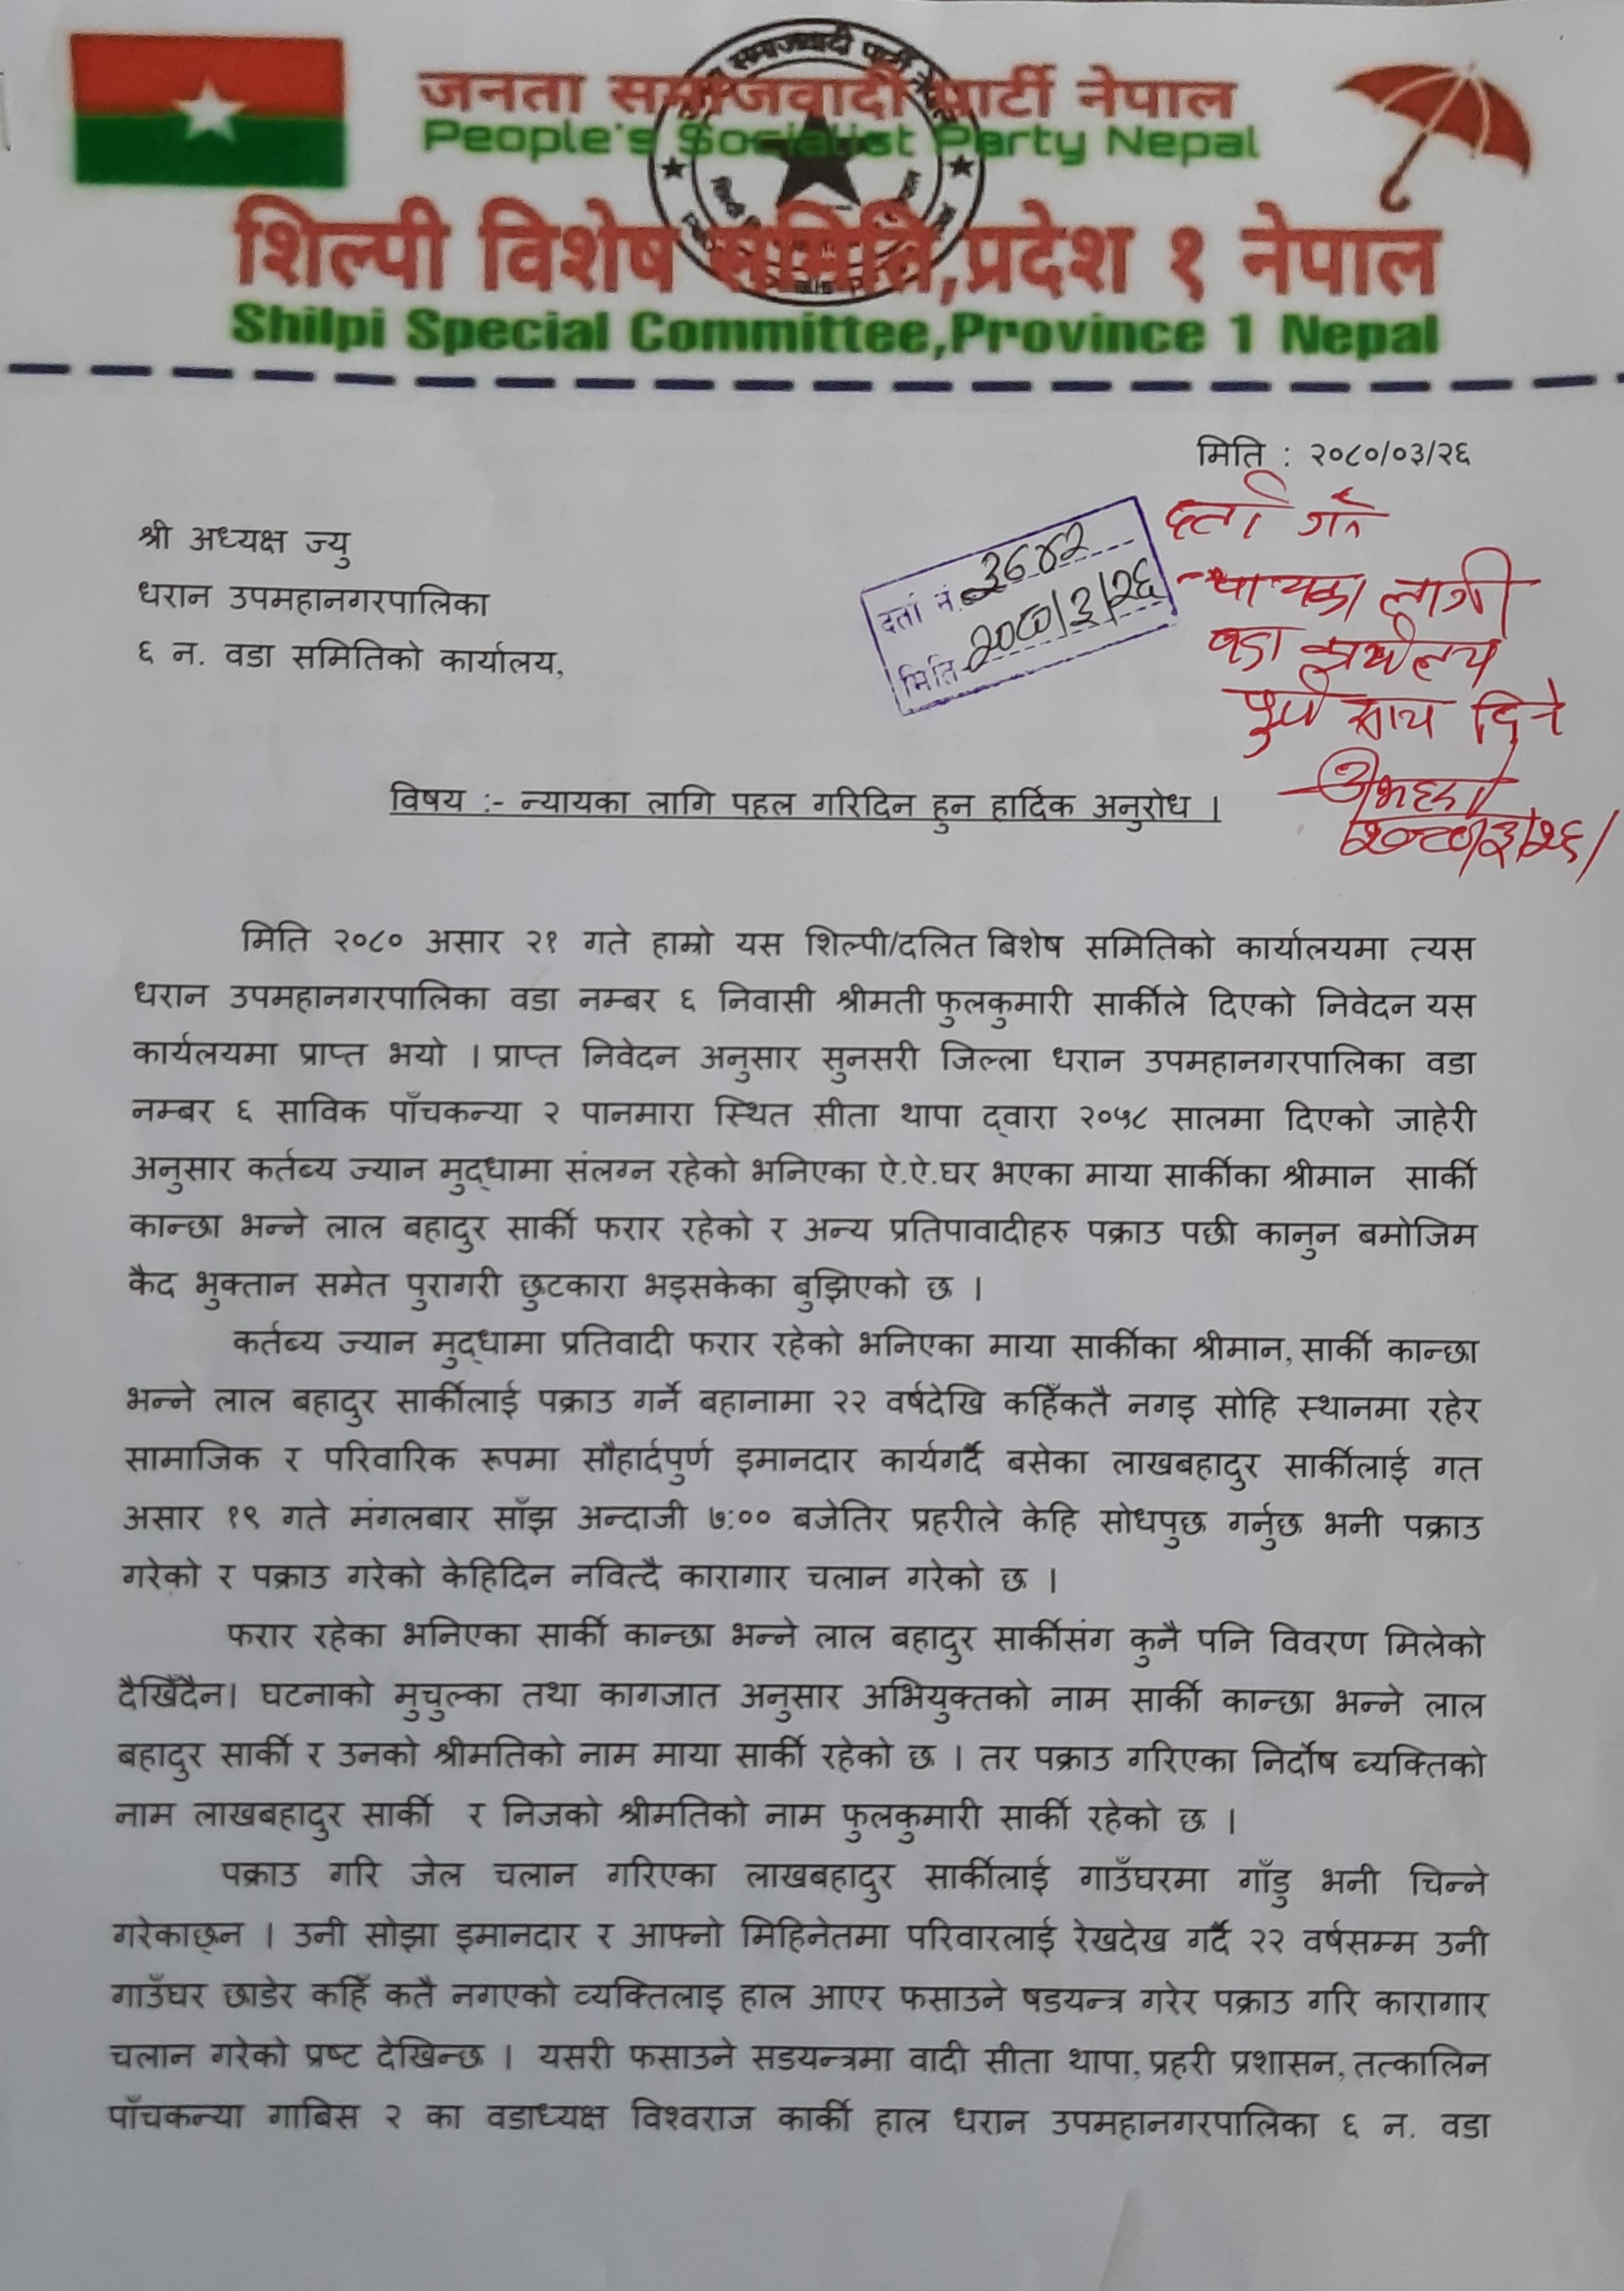 जनता समाजवादी पार्टी नेपाल
People's Socialist Party Nepal
शिल्पी विशेष समिति,प्रदेश १ नेपाल
Shilpi Special Committee,Province 1 Nepal
मिति : २०८०/०३/२६
दर्ता गर्ने
न्यायका लागी
वडा कार्यालय
पुर्ण साथ दिने
२०८०/३/२६
दर्ता नं.
मिति २०८०/३/२६
श्री अध्यक्ष ज्यु
धरान उपमहानगरपालिका
६ न. वडा समितिको कार्यालय,
विषय :- न्यायका लागि पहल गरिदिन हुन हार्दिक अनुरोध ।
मिति २०८० असार २१ गते हाम्रो यस शिल्पी/दलित बिशेष समितिको कार्यालयमा त्यस
धरान उपमहानगरपालिका वडा नम्बर ६ निवासी श्रीमती फुलकुमारी सार्कीले दिएको निवेदन यस
कार्यलयमा प्राप्त भयो । प्राप्त निवेदन अनुसार सुनसरी जिल्ला धरान उपमहानगरपालिका वडा
नम्बर ६ साविक पाँचकन्या २ पानमारा स्थित सीता थापा द्वारा २०५८ सालमा दिएको जाहेरी
अनुसार कर्तब्य ज्यान मुद्धामा संलग्न रहेको भनिएका ऐ.ऐ.घर भएका माया सार्कीका श्रीमान सार्की
कान्छा भन्ने लाल बहादुर सार्की फरार रहेको र अन्य प्रतिपावादीहरु पक्राउ पछी कानुन बमोजिम
कैद भुक्तान समेत पुरागरी छुटकारा भइसकेका बुझिएको छ ।
कर्तब्य ज्यान मुद्धामा प्रतिवादी फरार रहेको भनिएका माया सार्कीका श्रीमान, सार्की कान्छा
भन्ने लाल बहादुर सार्कीलाई पक्राउ गर्ने बहानामा २२ वर्षदेखि कहिँकतै नगइ सोहि स्थानमा रहेर
सामाजिक र परिवारिक रूपमा सौहार्दपुर्ण इमानदार कार्यगर्दै बसेका लाखबहादुर सार्कीलाई गत
असार १९ गते मंगलबार साँझ अन्दाजी ७:०० बजेतिर प्रहरीले केहि सोधपुछ गर्नुछ भनी पक्राउ
गरेको र पक्राउ गरेको केहिदिन नवित्दै कारागार चलान गरेको छ ।
फरार रहेका भनिएका सार्की कान्छा भन्ने लाल बहादुर सार्कीसंग कुनै पनि विवरण मिलेको
दैखिँदैन। घटनाको मुचुल्का तथा कागजात अनुसार अभियुक्तको नाम सार्की कान्छा भन्ने लाल
बहादुर सार्की र उनको श्रीमतिको नाम माया सार्की रहेको छ । तर पक्राउ गरिएका निर्दोष ब्यक्तिको
नाम लाखबहादुर सार्की र निजको श्रीमतिको नाम फुलकुमारी सार्की रहेको छ ।
पक्राउ गरि जेल चलान गरिएका लाखबहादुर सार्कीलाई गाउँघरमा गाँडु भनी चिन्ने
गरेकाछ्न । उनी सोझा इमानदार र आफ्नो मिहिनेतमा परिवारलाई रेखदेख गर्दै २२ वर्षसम्म उनी
गाउँघर छाडेर कहिँ कतै नगएको व्यक्तिलाइ हाल आएर फसाउने षडयन्त्र गरेर पक्राउ गरि कारागार
चलान गरेको प्रष्ट देखिन्छ । यसरी फसाउने सडयन्त्रमा वादी सीता थापा, प्रहरी प्रशासन, तत्कालिन
पाँचकन्या गाबिस २ का वडाध्यक्ष विश्वराज कार्की हाल धरान उपमहानगरपालिका ६ न. वडा